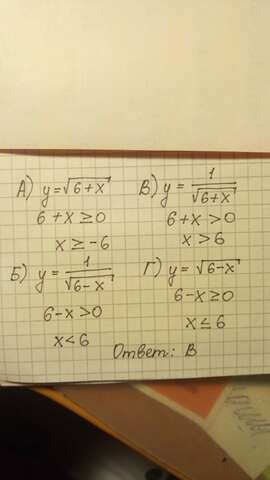 А) y=√6+x
6+x≥0
x≥-6
Б) y=1/√6-x
6-x>0
x<6
В) y=1/√6+x
6+x>0
x>6
Г) y=√6-x
6-x≥0
x≤6
Ответ: В